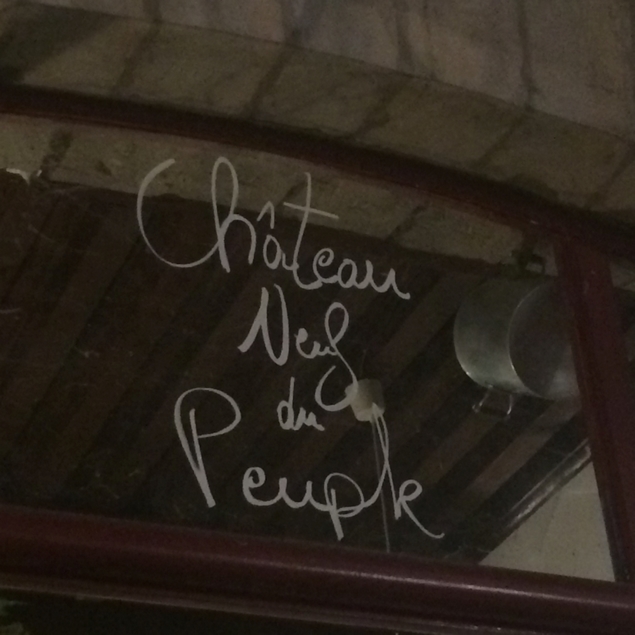 Château
Neuf
du
Peuple